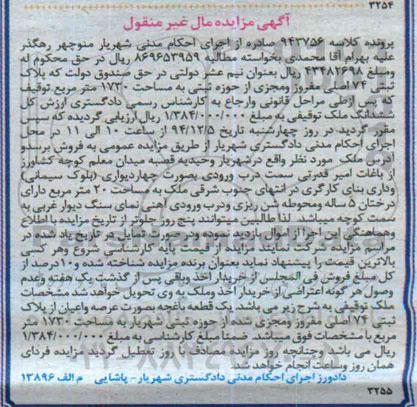 ۳۲۵۴
آگهی مزایده مال غیر منقول
پرونده کلاسه ۹۴۳۷۵۶ صادره از اجرای احکام مدنی شهریار منوچهر رهگذر
علیه بهرام آقا محمدی بخواسته مطالبه ۸۶۹۶۵۳۹۵۹ ریال در حق محکوم له
ومبلغ ۴۳۴۸۲۶۹۸ ریال بعنوان نیم عشر دولتی در حق صندوق دولت که پلاک
ثبتی ۷۴ اصلی مفروز ومجزی از حوزه ثبتی به مساحت ۱۷۳۰ متر مربع توقیف
که پس ازطی مراحل قانونی وارجاع به کارشناس رسمی دادگستری ارزش کل
ششدانگ ملک توقیفی به مبلغ ۱/۳۸۴/۰۰۰/۰۰۰ ریال ارزیابی گردیده که سپس
مقرر گردید در روز چهارشنبه تاریخ ۹۴/۱۲/۵ از ساعت ۱۰ الی ۱۱ در محل
اجرای احکام مدنی دادگستری شهریار از طریق مزایده عمومی به فروش برسد
آدرس ملک مورد نظر واقع درشهریار وحیدیه قصبه میدان معلم کوچه کشاورز
از باغات امیر قدرتی سمت درب ورودی بصورت چهاردیواری (بلوک سیمانی)
وداری بنای کارگری در انتهای جنوب شرقی ملک به مساحت ۲۰ متر مربع دارای
درختان ۵ ساله ومحوطه شن ریزی ودرب ورودی آهنی نمای سنگ دیوار غربی به
سمت کوچه میباشد. لذا طالبین میتوانند پنج روز جلوتر از تاریخ مزایده با اطلاع
وهماهنگی این اجرا از اموال بازدید نموده و در صورت تمایل در تاریخ یاد شده در
مراسم مزایده شرکت نمایند مزایده از قیمت پایه کارشناسی شروع وهر کسی
بالاترین قیمت را پیشنهاد نماید بعنوان برنده مزایده شناخته شده و۱۰درصد از
کل مبلغ فروش فی المجلس از خریدار اخذ وباقی پس از گذشت یک هفته وعدم
وصول هر گونه اعتراضی از خریدار اخذ وملک به وی تحویل خواهد شد مشخصات
ملک توقیفی به شرح زیر می باشد. یک قطعه باغچه بصورت عرصه واعیان از پلاک
ثبتی ۷۴ اصلی مفروز ومجزی شده از حوزه ثبتی شهریار به مساحت ۱۷۳۰ متر
مربع با مشخصات فوق میباشد. ضمنا مبلغ کارشناسی به مبلغ ۱/۳۸۴/۰۰۰/۰۰۰
ریال می باشد وچنانچه روز مزایده مصادف با روز تعطیل گردید مزایده فردای
همان روز وساعت انجام خواهد شد.
دادورز اجرای احکام مدنی دادگستری شهریار- پاشایی م الف ۱۳۸۹۶
۳۲۵۵